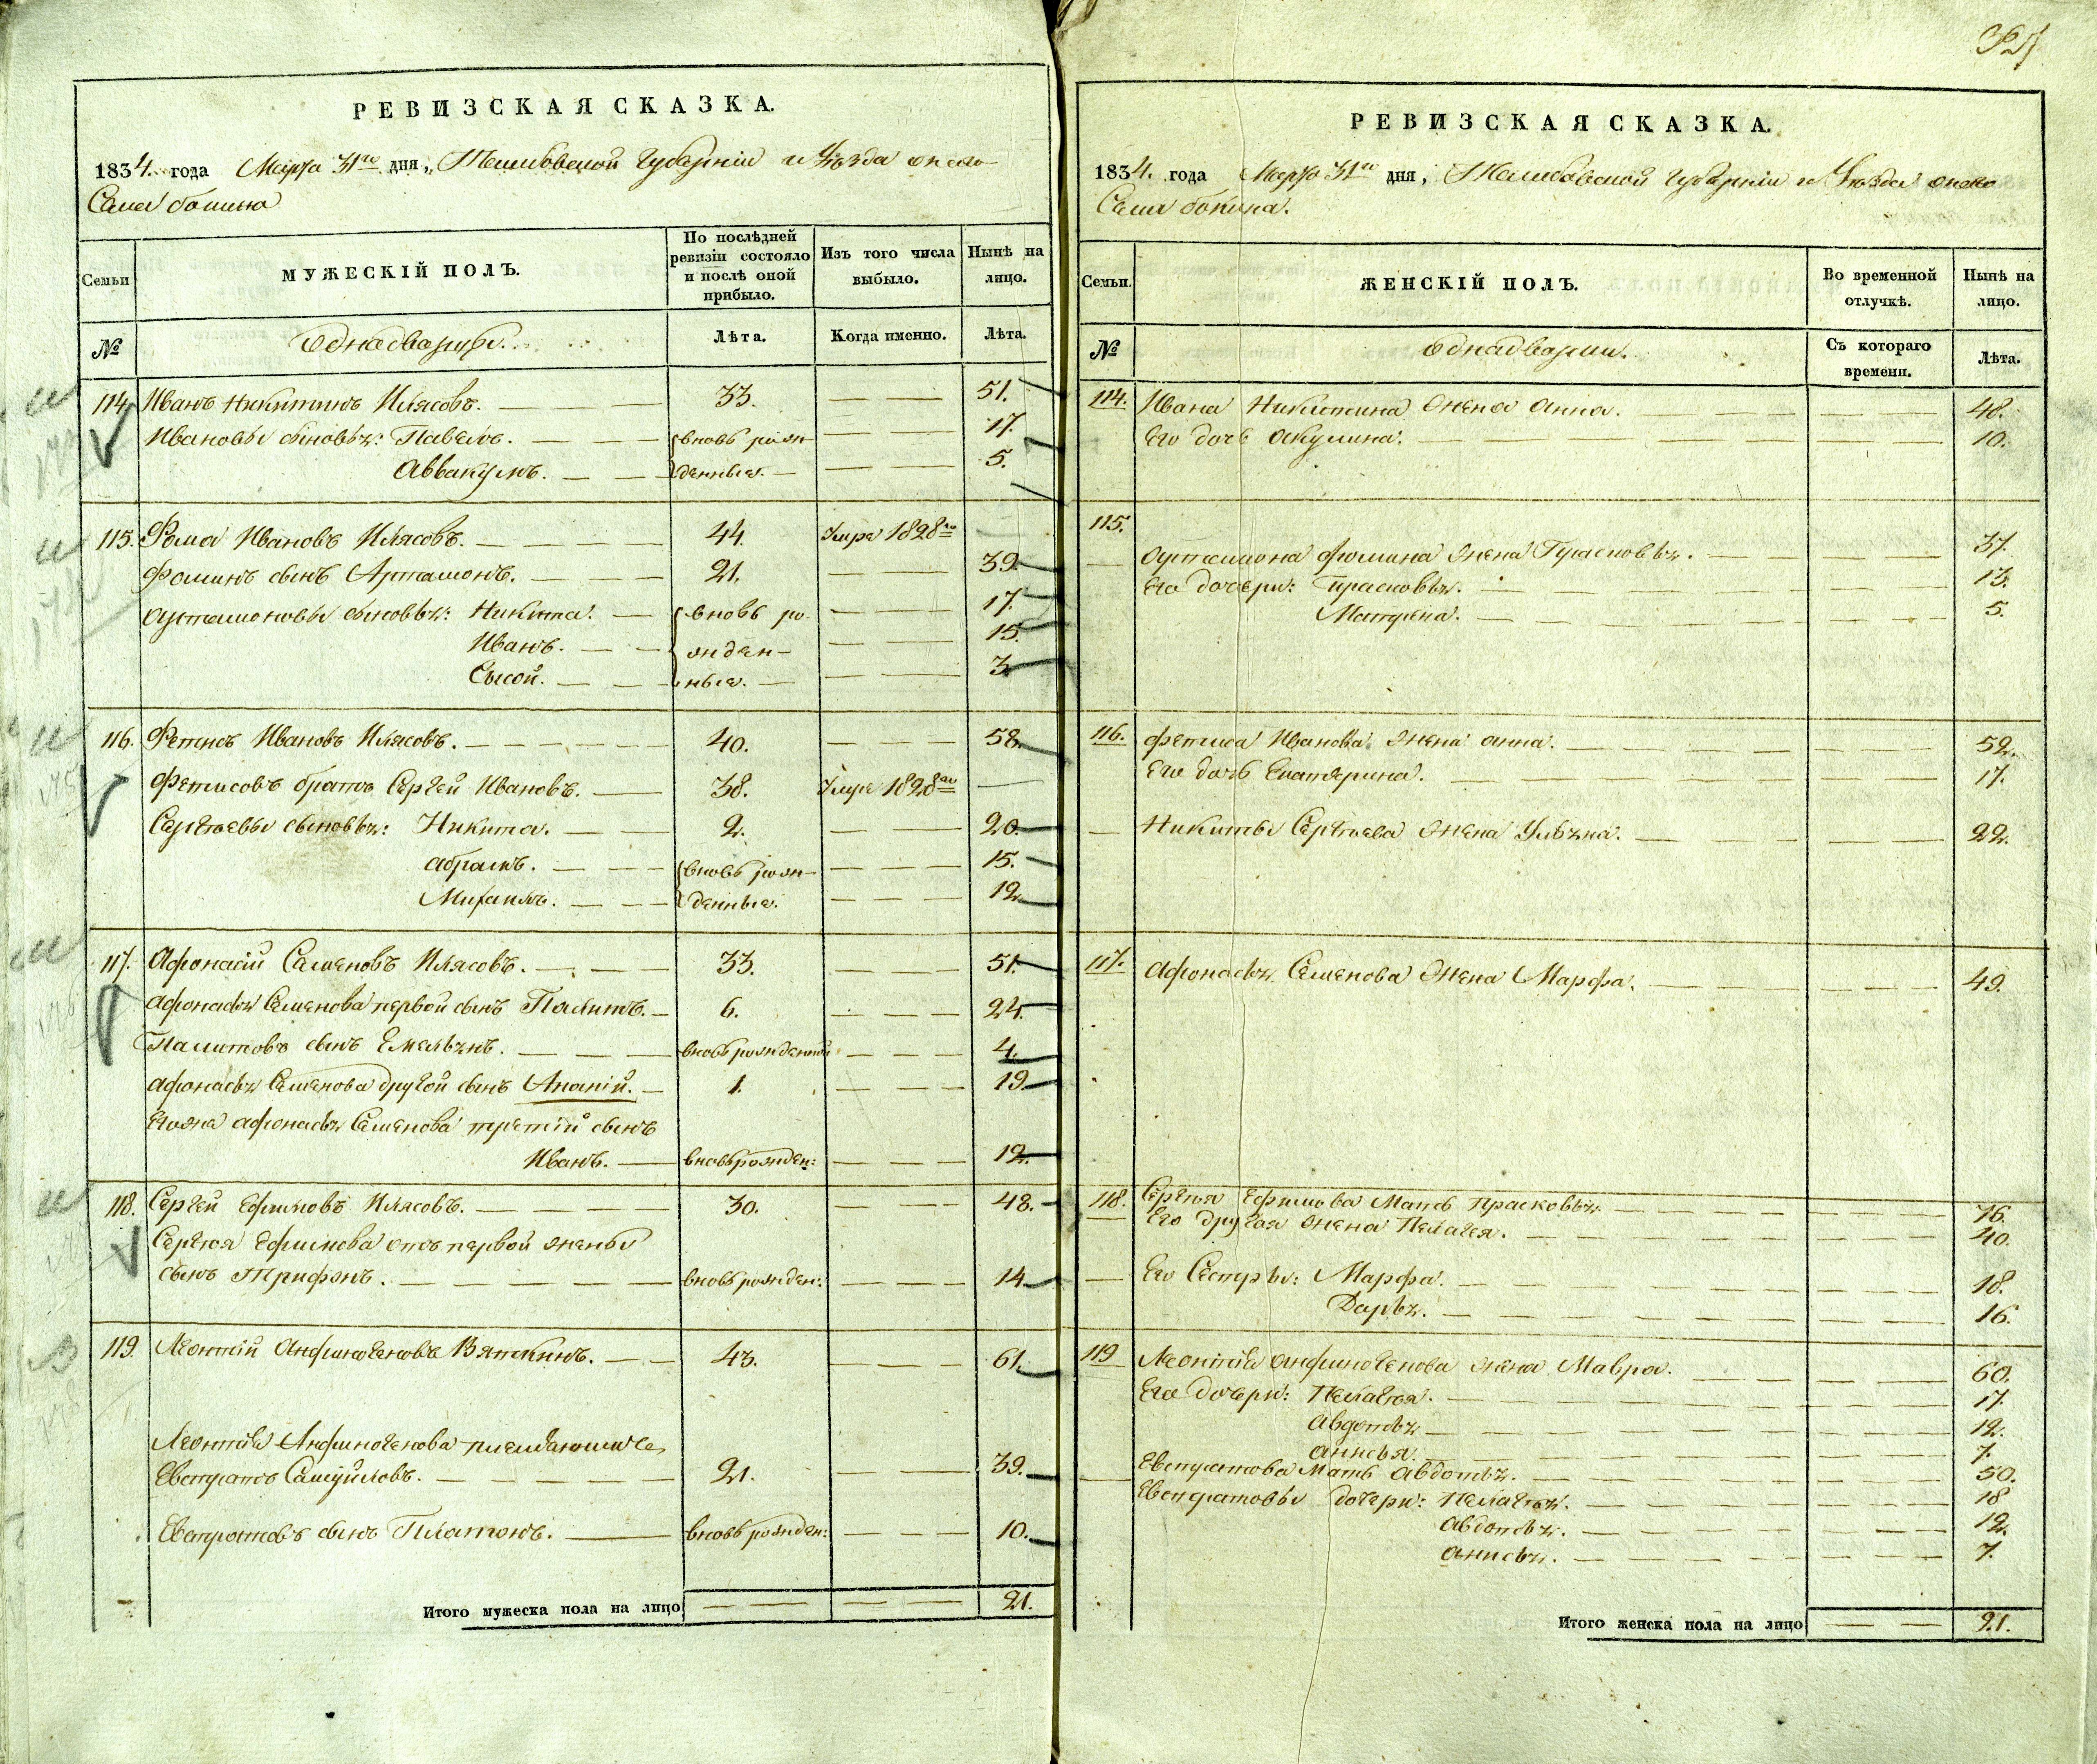 РЕВИЗСКАЯ СКАЗКА.
1834. года Марта 31го дня, Тамбовской Губернiи и Уѣзда онаго
Села бокина
Семьи
МУЖЕСКIЙ ПОЛЪ.
По послѣдней ревизiи состояло и послѣ оной прибыло.
Изъ того числа выбыло.
Нынѣ на лицо.
№
однадварцы.
Лѣта.
Когда именно.
Лѣта.
114. Иванъ Никитинъ Илясовъ. 33. 51.
Ивановы сыновья: Павелъ. вновь рож- 17.
Аввакумъ. денные. 5.
115. Фома Ивановъ Илясовъ. 44. Умре 1828го
Фоминъ сынъ Артамонъ. 21. 39.
Артамоновы сыновья: Никита. вновь ро- 17.
Иванъ. жден- 15.
Сысой. ные. 3.
116. Фетисъ Ивановъ Илясовъ. 40. 58.
Фетисовъ братъ Сергей Ивановъ. 38. Умре 1828го
Сергѣевы сыновья: Никита. 2. 20.
Абрамъ. вновь рож- 15.
Михаилъ. денные. 12.
117. Афонасiй Семеновъ Илясовъ. 33. 51.
Афонасья Семенова первой сынъ Палитъ. 6. 24.
Палитовъ сынъ Емельянъ. вновь рожденной 4.
Афонасья Семенова другой сынъ Ананiй. 1. 19.
Егожа Афонасья Семенова третiй сынъ
Иванъ. вновь рожден: 12.
118. Сергей Ефимовъ Илясовъ. 30. 48.
Сергѣя Ефимова отъ первой жены
сынъ Трифонъ. вновь рожден: 14
119. Леонтiй Анфиногеновъ Вяткинъ. 43. 61.
Леонтiя Анфиногенова племянникъ
Евстратъ Самуйловъ. 21. 39.
Евстратовъ сынъ Платонъ. вновь рожден: 10.
Итого мужеска пола на лицо 21.
РЕВИЗСКАЯ СКАЗКА.
1834. года Марта 31го дня, Тамбовской Губернiи и Уѣзда онаго
Села бокина.
Семьи.
ЖЕНСКIЙ ПОЛЪ.
Во временной отлучкѣ.
Нынѣ на лицо.
№
однадварцы.
Съ котораго времени.
Лѣта.
114. Ивана Никитина жена Анна. 48.
Его дочь Акулина. 10.
115.
Артамона Фомина жена Прасковья. 37.
Его дочери: Прасковья. 13.
Матрена. 5.
116. Фетиса Иванова жена Анна. 52.
Его дочь Екатерина. 17.
Никиты Сергѣева жена Ульяна. 22.
117. Афонасья Семенова жена Марфа. 49.
118. Сергѣя Ефимова Мать Прасковья 76.
Его другая жена Пелагея. 40.
Его Сестры: Марфа. 18.
Дарья. 16.
119 Леонтiя Анфиногенова жена Мавра. 60.
Его дочери: Пелагея. 17.
Авдотья 12.
Анисья. 7.
Евстратова Мать Авдотья. 50.
Евстратовы дочери: Пелагея. 18
Авдотья. 12.
Анисья. 7.
Итого женска пола на лицо 21.